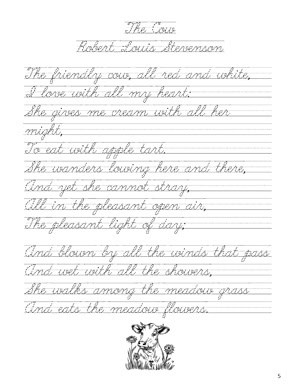 The Cow
Robert Louis Stevenson
The friendly cow, all red and white,
I love with all my heart:
She gives me cream with all her
might,
To eat with apple tart.
She wanders lowing here and there,
And yet she cannot stray,
All in the pleasant open air,
The pleasant light of day;
And blown by all the winds that pass
And wet with all the showers,
She walks among the meadow grass
And eats the meadow flowers.
5